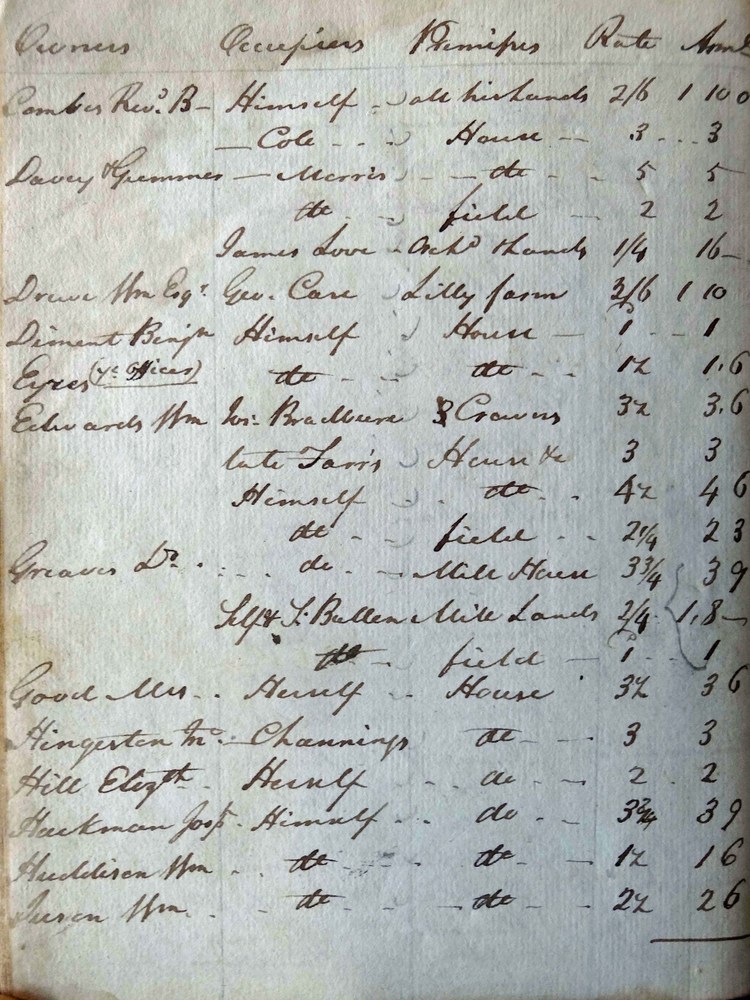 Owners Occupiers Premises Rate Amt
Combes Revd. B- Himself all his lands 2/6 1 10 0
Cole House 3 3
Davey & Gemmer Morris do 5 5
do field 2 2
James Love Orchd & lands 1/4 16
Drewe Wm Esqr. Geo. Case Lilly farm 2/6 1 10
Diment Benjn Himself House 1 1
Eyres (ye offices) do do 1½ 1.6
Edwards Wm Bradburn 3 Crowns 3½ 3.6
late Farris House &c 3 3
Himself do 4½ 4 6
do field 2¼ 2 3
Greaves Do. do Mill House 3¾ 3 9
Self & Bullen Mill Lands 2/4 1.8
do field 1 1
Good Mrs. Herself House 3½ 3 6
Hingeston Channings do 3 3
Hill Elizth. Herself do 2 2
Hackman Josh. Himself do 3¾ 3 9
Huddison Wm do do 1½ 1 6
Wm do do 2½ 2 6